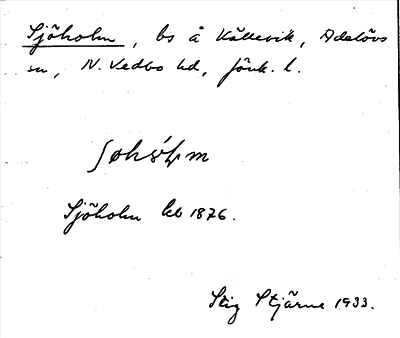 Sjöholm, bs å Källevik, Adelövs
sn, N. Vedbo hd, Jönk. l.
Sjöholm hb 1876.
Stig Stjärne 1933.